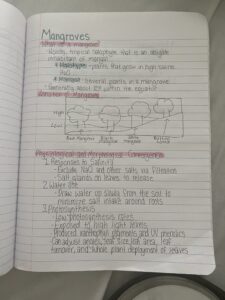 Mangroves
What is a mangrove?
Woody, tropical halophyte that is an obligate
inhabitant of mangal
* Halophyte - plants that grow in high saline
H2O
* Mangal - several plants in a mangrove
- Generally about 28° within the equator
Zonation of Mangroves
High
Low
Red Mangrove
Black Mangrove
White Mangrove
Physiological and Morphological Consequences
1. Responses to Salinity
- Exclude NaCl and other salts via filtration
- Salt glands on leaves to release
2. Water Use
- Draw water up slowly from the soil to
minimize salt intake around roots
3. Photosynthesis
- Low photosynthesis rates
- Exposed to high light levels
- Produced xanthophyll pigments and UV phenolics
- Can adjust angles, leaf size, leaf area, leaf
turnover, and whole plant deployment of leaves